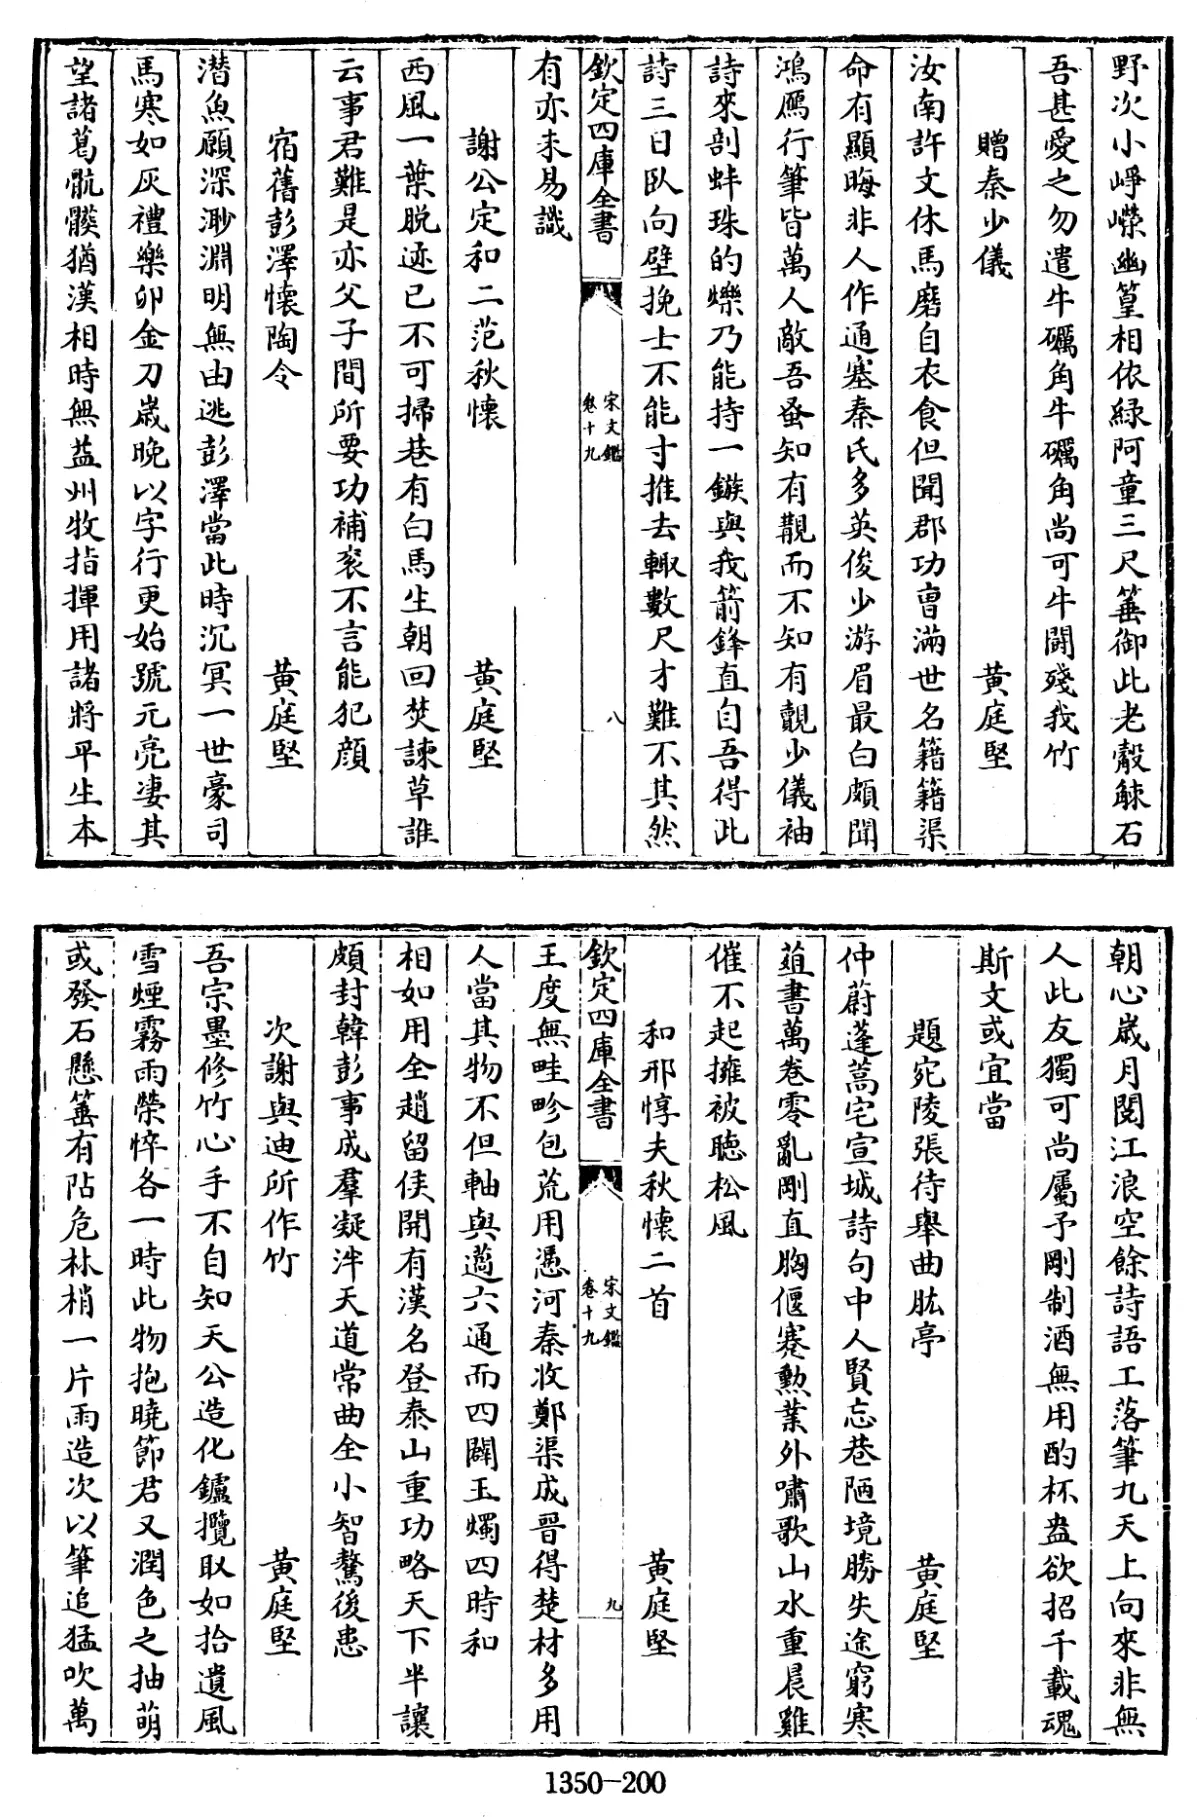 野次小崢嶸幽篁相依緑阿童三尺箠御此老觳觫石
吾甚愛之勿遣牛礪角牛礪角尚可牛鬪殘我竹
贈秦少儀 黄庭堅
汝南許文休馬磨自衣食但聞郡功曹滿世名籍籍渠
命有顯晦非人作通塞秦氏多英俊少游眉最白頗聞
鴻鴈行筆皆萬人敵吾蚤知有覯而不知有覿少儀袖
詩來剖蚌珠的爍乃能持一鏃與我箭鋒直自吾得此
詩三日臥向壁挽士不能寸推去輙數尺才難不其然
欽定四庫全書
宋文鑑
卷十九
八
有亦未易識
謝公定和二范秋懷 黄庭堅
西風一葉脱迹已不可掃巷有白馬生朝回焚諫草誰
云事君難是亦父子間所要功補衮不言能犯顔
宿舊彭澤懷陶令 黄庭堅
潜魚願深渺淵明無由逃彭澤當此時沉冥一世豪司
馬寒如灰禮樂卯金刀嵗晚以字行更始號元亮凄其
望諸葛骯髒猶漢相時無益州牧指揮用諸將平生本
朝心嵗月閲江浪空餘詩語工落筆九天上向來非無
人此友獨可尚屬予剛制酒無用酌杯盎欲招千載魂
斯文或宜當
題宛陵張待舉曲肱亭 黄庭堅
仲蔚蓬蒿宅宣城詩句中人賢忘巷陋境勝失途窮寒
葅書萬卷零亂剛直胸偃蹇勲業外嘯歌山水重晨雞
催不起擁被聽松風
和邢惇夫秋懷二首 黄庭堅
欽定四庫全書
宋文鑑
卷十九
九
王度無畦畛包荒用憑河秦收鄭渠成晋得楚材多用
人當其物不但軸與薖六通而四闢玉燭四時和
相如用全趙留侯開有漢名登泰山重功略天下半讓
頗封韓彭事成羣凝泮天道常曲全小智驁後患
次謝與迪所作竹 黄庭堅
吾宗墨修竹心手不自知天公造化鑪攬取如拾遺風
雪煙霧雨榮悴各一時此物抱曉節君又潤色之抽萌
或發石懸箠有阽危林梢一片雨造次以筆追猛吹萬
1350-200